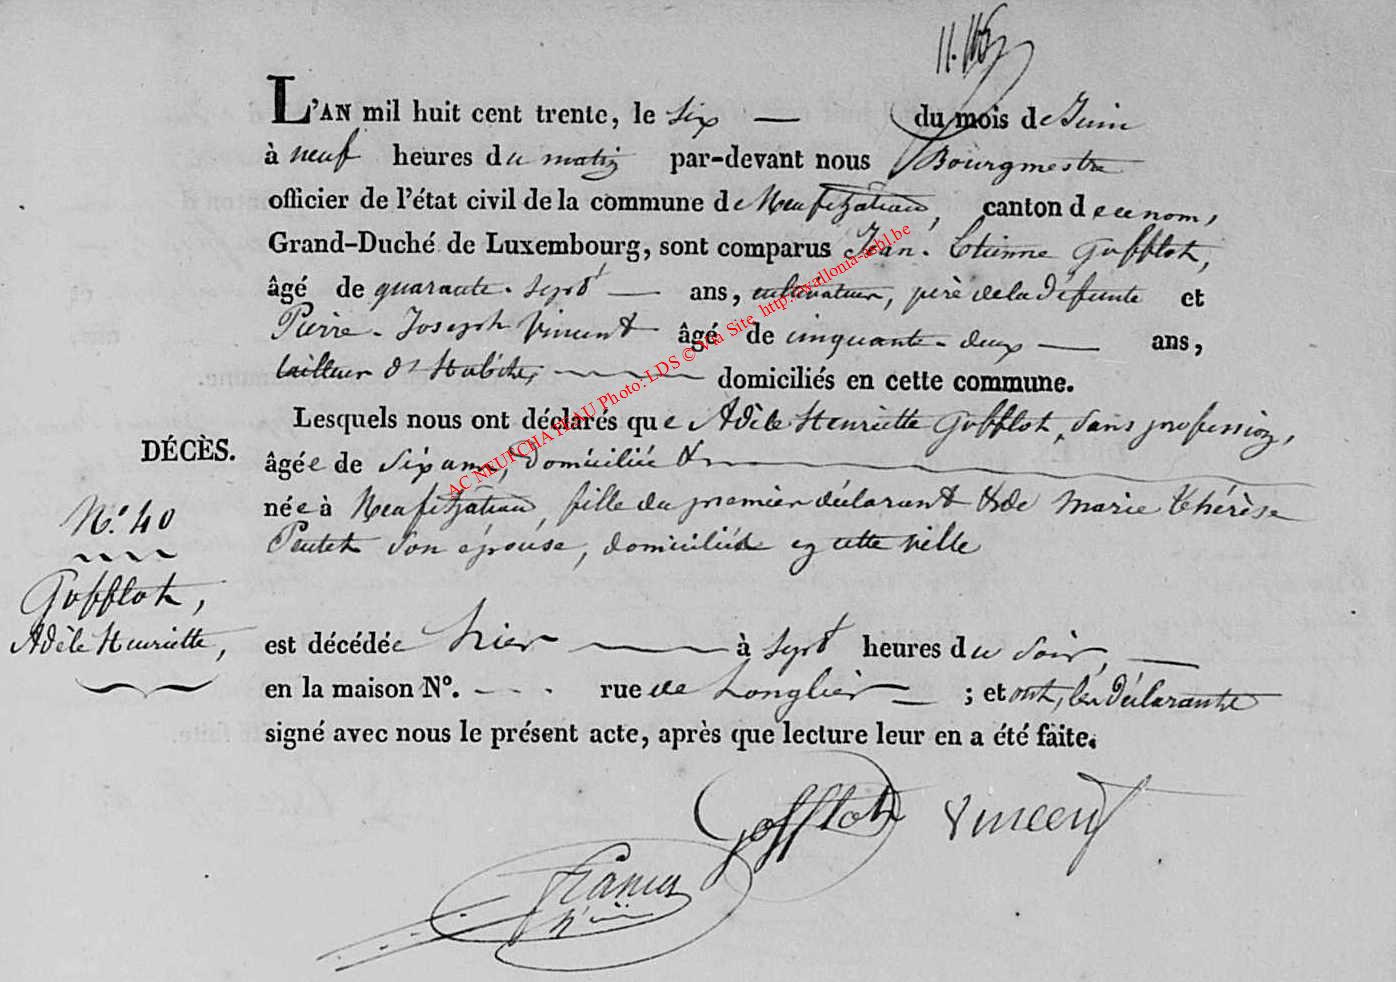 L'AN mil huit cent trente, le six du mois de Juin
à neuf heures du matin par-devant nous Bourgmestre
officier de l'état civil de la commune de Neufchâteau, canton de ce nom,
Grand-Duché de Luxembourg, sont comparus Jean-Etienne Gofflot,
âgé de quarante-sept ans, cultivateur, père de la défunte et
Pierre-Joseph Vincent âgé de cinquante-deux ans,
tailleur d'habits, domiciliés en cette commune.
Lesquels nous ont déclarés que Adèle Henriette Gofflot, sans profession,
DÉCÈS.
âgée de six ans, domiciliée
née à Neufchâteau, fille du premier déclarant & de Marie Thérèse
N.° 40
son épouse, domiciliés en cette ville
Gofflot,
Adèle Henriette,
est décédée hier à sept heures du soir,
en la maison N°. rue de Longlier ; et ont, les déclarants
signé avec nous le présent acte, après que lecture leur en a été faite.
Gofflot Vincent
AC NEUFCHATEAU Photo: LDS © Via Site http://wallonia-asbl.be